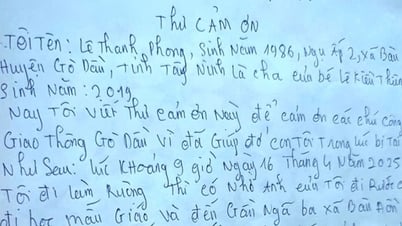 THƯ CẢM ƠN
. TÔI TÊN: LÊ THANH PHONG, SINH NĂM 1986, NGỤ ẤP 2, XÃ BÀU
HUYỆN GÒ DẦU, TỈNH TÂY NINH LÀ CHA CỦA BÉ LÊ KIỀU
SINH NĂM: 2019
NAY TÔI VIẾT THƯ CẢM ƠN NÀY ĐỂ CẢM ƠN CÁC CHÚ CÔNG
GIAO THÔNG GÒ DẦU VÌ ĐÃ GIÚP ĐỠ CON TÔI TRONG LÚC BỊ TAI
NHƯ SAU: LÚC KHOẢNG 9 GIỜ NGÀY 16 THÁNG 4 NĂM 2025
TÔI ĐI LÀM RUỘNG THÌ CÓ NHỜ ANH CỦA TÔI ĐI RƯỚC
ĐI HỌC MẪU GIÁO VÀ ĐẾN GẦN NGÃ BA XÃ BÀU ĐỒN